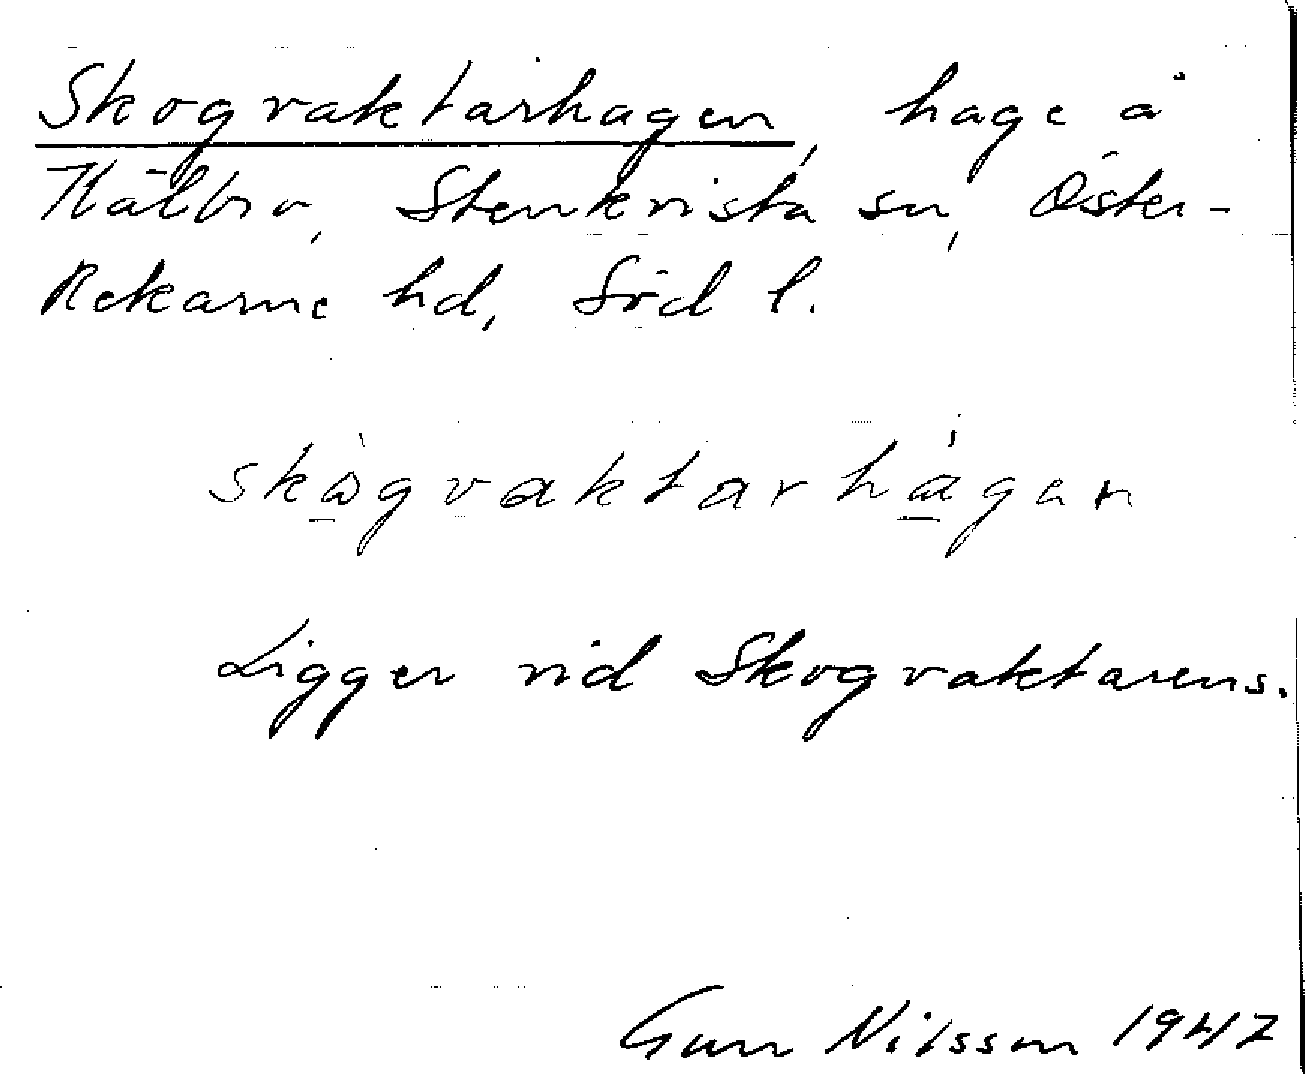 Skogvaktarhagen, hage å
Kälbro, Stenkvista sn, Öster-
Rekarne hd, Söd l.
skògvaktarhágen
Ligger vid Skogvaktarens.
Gun Nilsson 1947